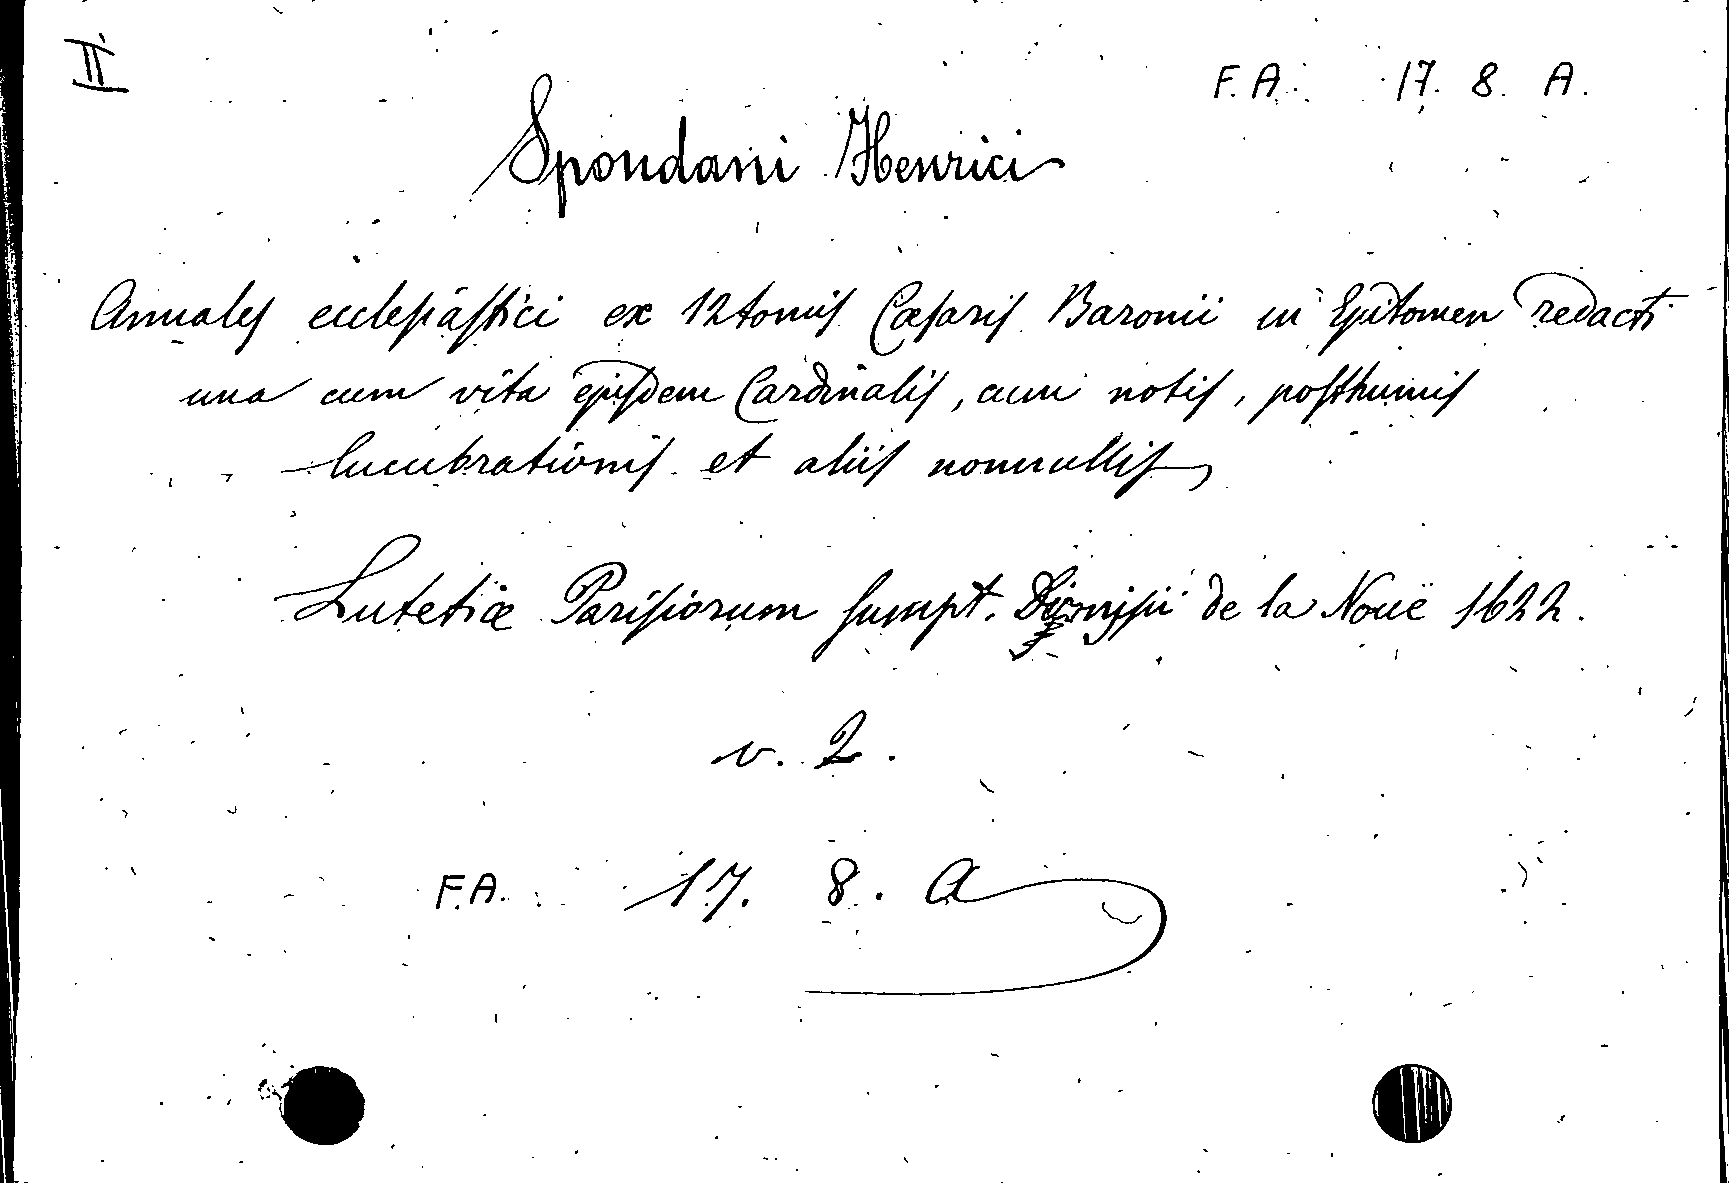 II.
F. A. 17. 8. A.
Spondani Henrici
Annales ecclesiastici ex 12 tomis Cæsaris Baronii in Epitomen redacti
una cum vita ejusdem Cardinalis, cum notis, posthumis
lucubrationis et aliis nonnullis
Lutetiæ Parisiorum sumpt. Dionisii de la Nouë 1622.
v. 2.
F.A. 17. 8. A